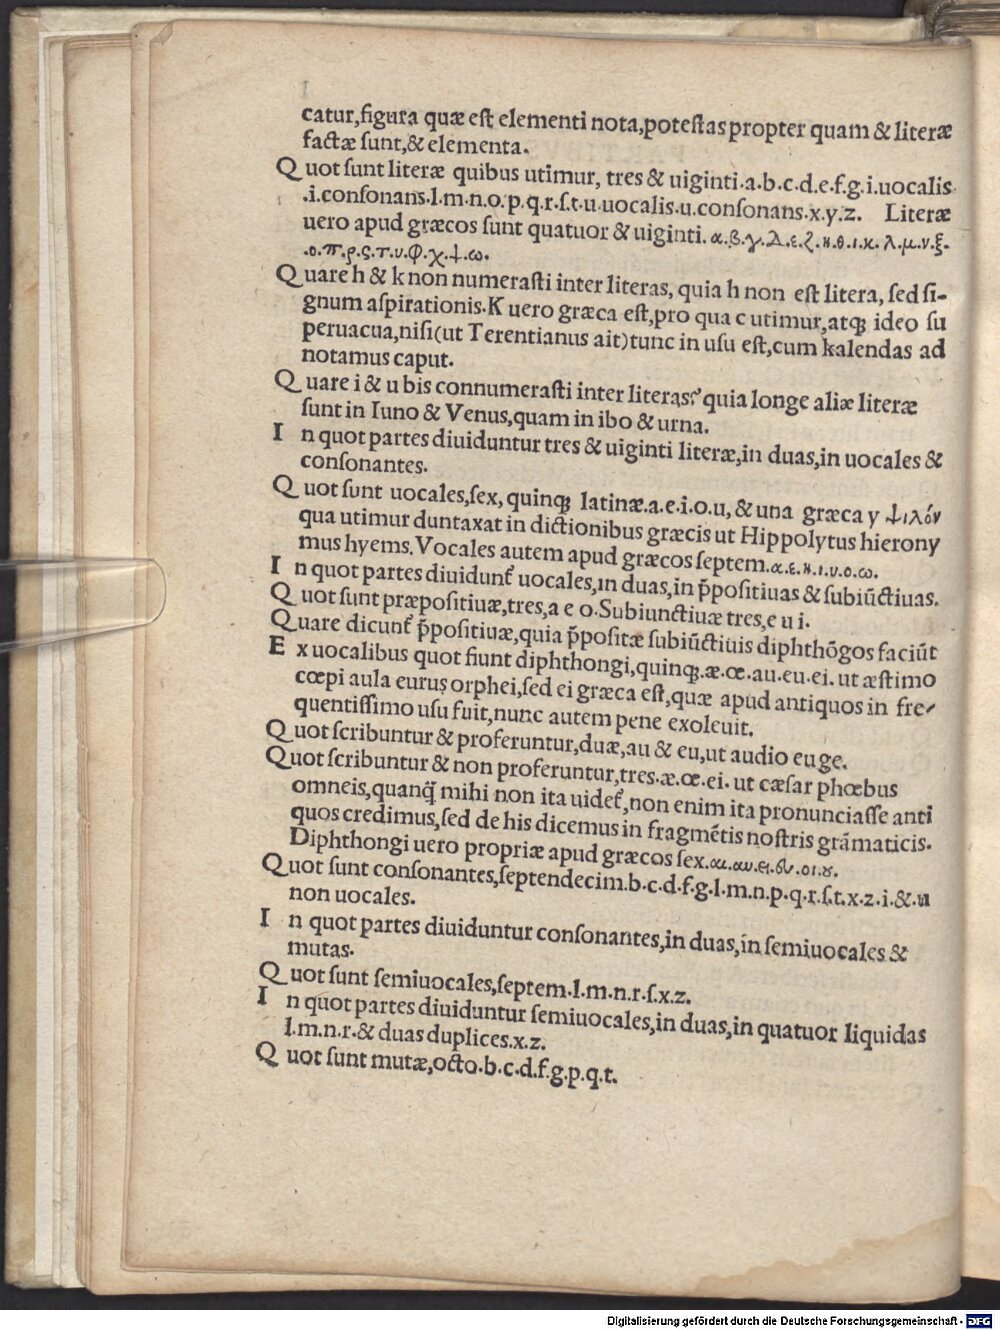 catur,figura quæ eſt elementi nota,poteſtas propter quam & literæ
factæ ſunt,& elementa.
Q uot ſunt literæ quibus utimur, tres & uiginti.a.b.c.d.e.f.g.i.uocalis
.i.conſonans.l.m.n.o.p.q.r.ſ.t.u.uocalis.u.conſonans.x.y.z. Literæ
uero apud græcos ſunt quatuor & uiginti.α.β.γ.Δ.ε.ζ.η.θ.ι.κ.λ.μ.ν.ξ.
.ο.π.ρ.ς.τ.υ.φ.χ.ψ.ω.
Q uare h & k non numeraſti inter literas, quia h non eſt litera, ſed ſi-
gnum aſpirationis.K uero græca eſt,pro qua c utimur,atqꝫ ideo ſu
peruacua,niſi(ut Terentianus ait)tunc in uſu eſt,cum kalendas ad
notamus caput.
Q uare i & u bis connumeraſti inter literas? quia longe aliæ literæ
ſunt in Iuno & Venus,quam in ibo & urna.
I n quot partes diuiduntur tres & uiginti literæ,in duas,in uocales &
conſonantes.
Q uot ſunt uocales,ſex, quinqꝫ latinæ.a.e.i.o.u, & una græca y ψιλόν
qua utimur duntaxat in dictionibus græcis ut Hippolytus hierony
mus hyems.Vocales autem apud græcos ſeptem.α.ε.η.ι.υ.ο.ω.
I n quot partes diuidunt᷑ uocales,in duas,in p̄poſitiuas & ſubiūctiuas.
Q uot ſunt præpoſitiuæ,tres,a e o.Subiunctiuæ tres,e u i.
Q uare dicunt᷑ p̄poſitiuæ,quia p̄poſitæ ſubiūctiuis diphthōgos faciūt
E x uocalibus quot fiunt diphthongi,quinqꝫ.æ.œ.au.eu.ei. ut æſtimo
cœpi aula eurus orphei,ſed ei græca eſt,quæ apud antiquos in fre-
quentiſſimo uſu fuit,nunc autem pene exoleuit.
Q uot ſcribuntur & proferuntur,duæ,au & eu,ut audio euge.
Q uot ſcribuntur & non proferuntur,tres.æ.œ.ei. ut cæſar phœbus
omneis,quanq̄ mihi non ita uidet᷑,non enim ita pronunciaſſe anti
quos credimus,ſed de his dicemus in fragmētis noſtris grāmaticis.
Diphthongi uero propriæ apud græcos ſex.αι.αυ.ει.ευ.οι.ȣ.
Q uot ſunt conſonantes,ſeptendecim.b.c.d.f.g.l.m.n.p.q.r.ſ.t.x.z.i.&.u
non uocales.
I n quot partes diuiduntur conſonantes,in duas,in ſemiuocales &
mutas.
Q uot ſunt ſemiuocales,ſeptem.l.m.n.r.ſ.x.z.
I n quot partes diuiduntur ſemiuocales,in duas,in quatuor liquidas
l.m.n.r.& duas duplices.x.z.
Q uot ſunt mutæ,octo.b.c.d.f.g.p.q.t.
Digitalisierung gefördert durch die Deutsche Forschungsgemeinschaft - DFG